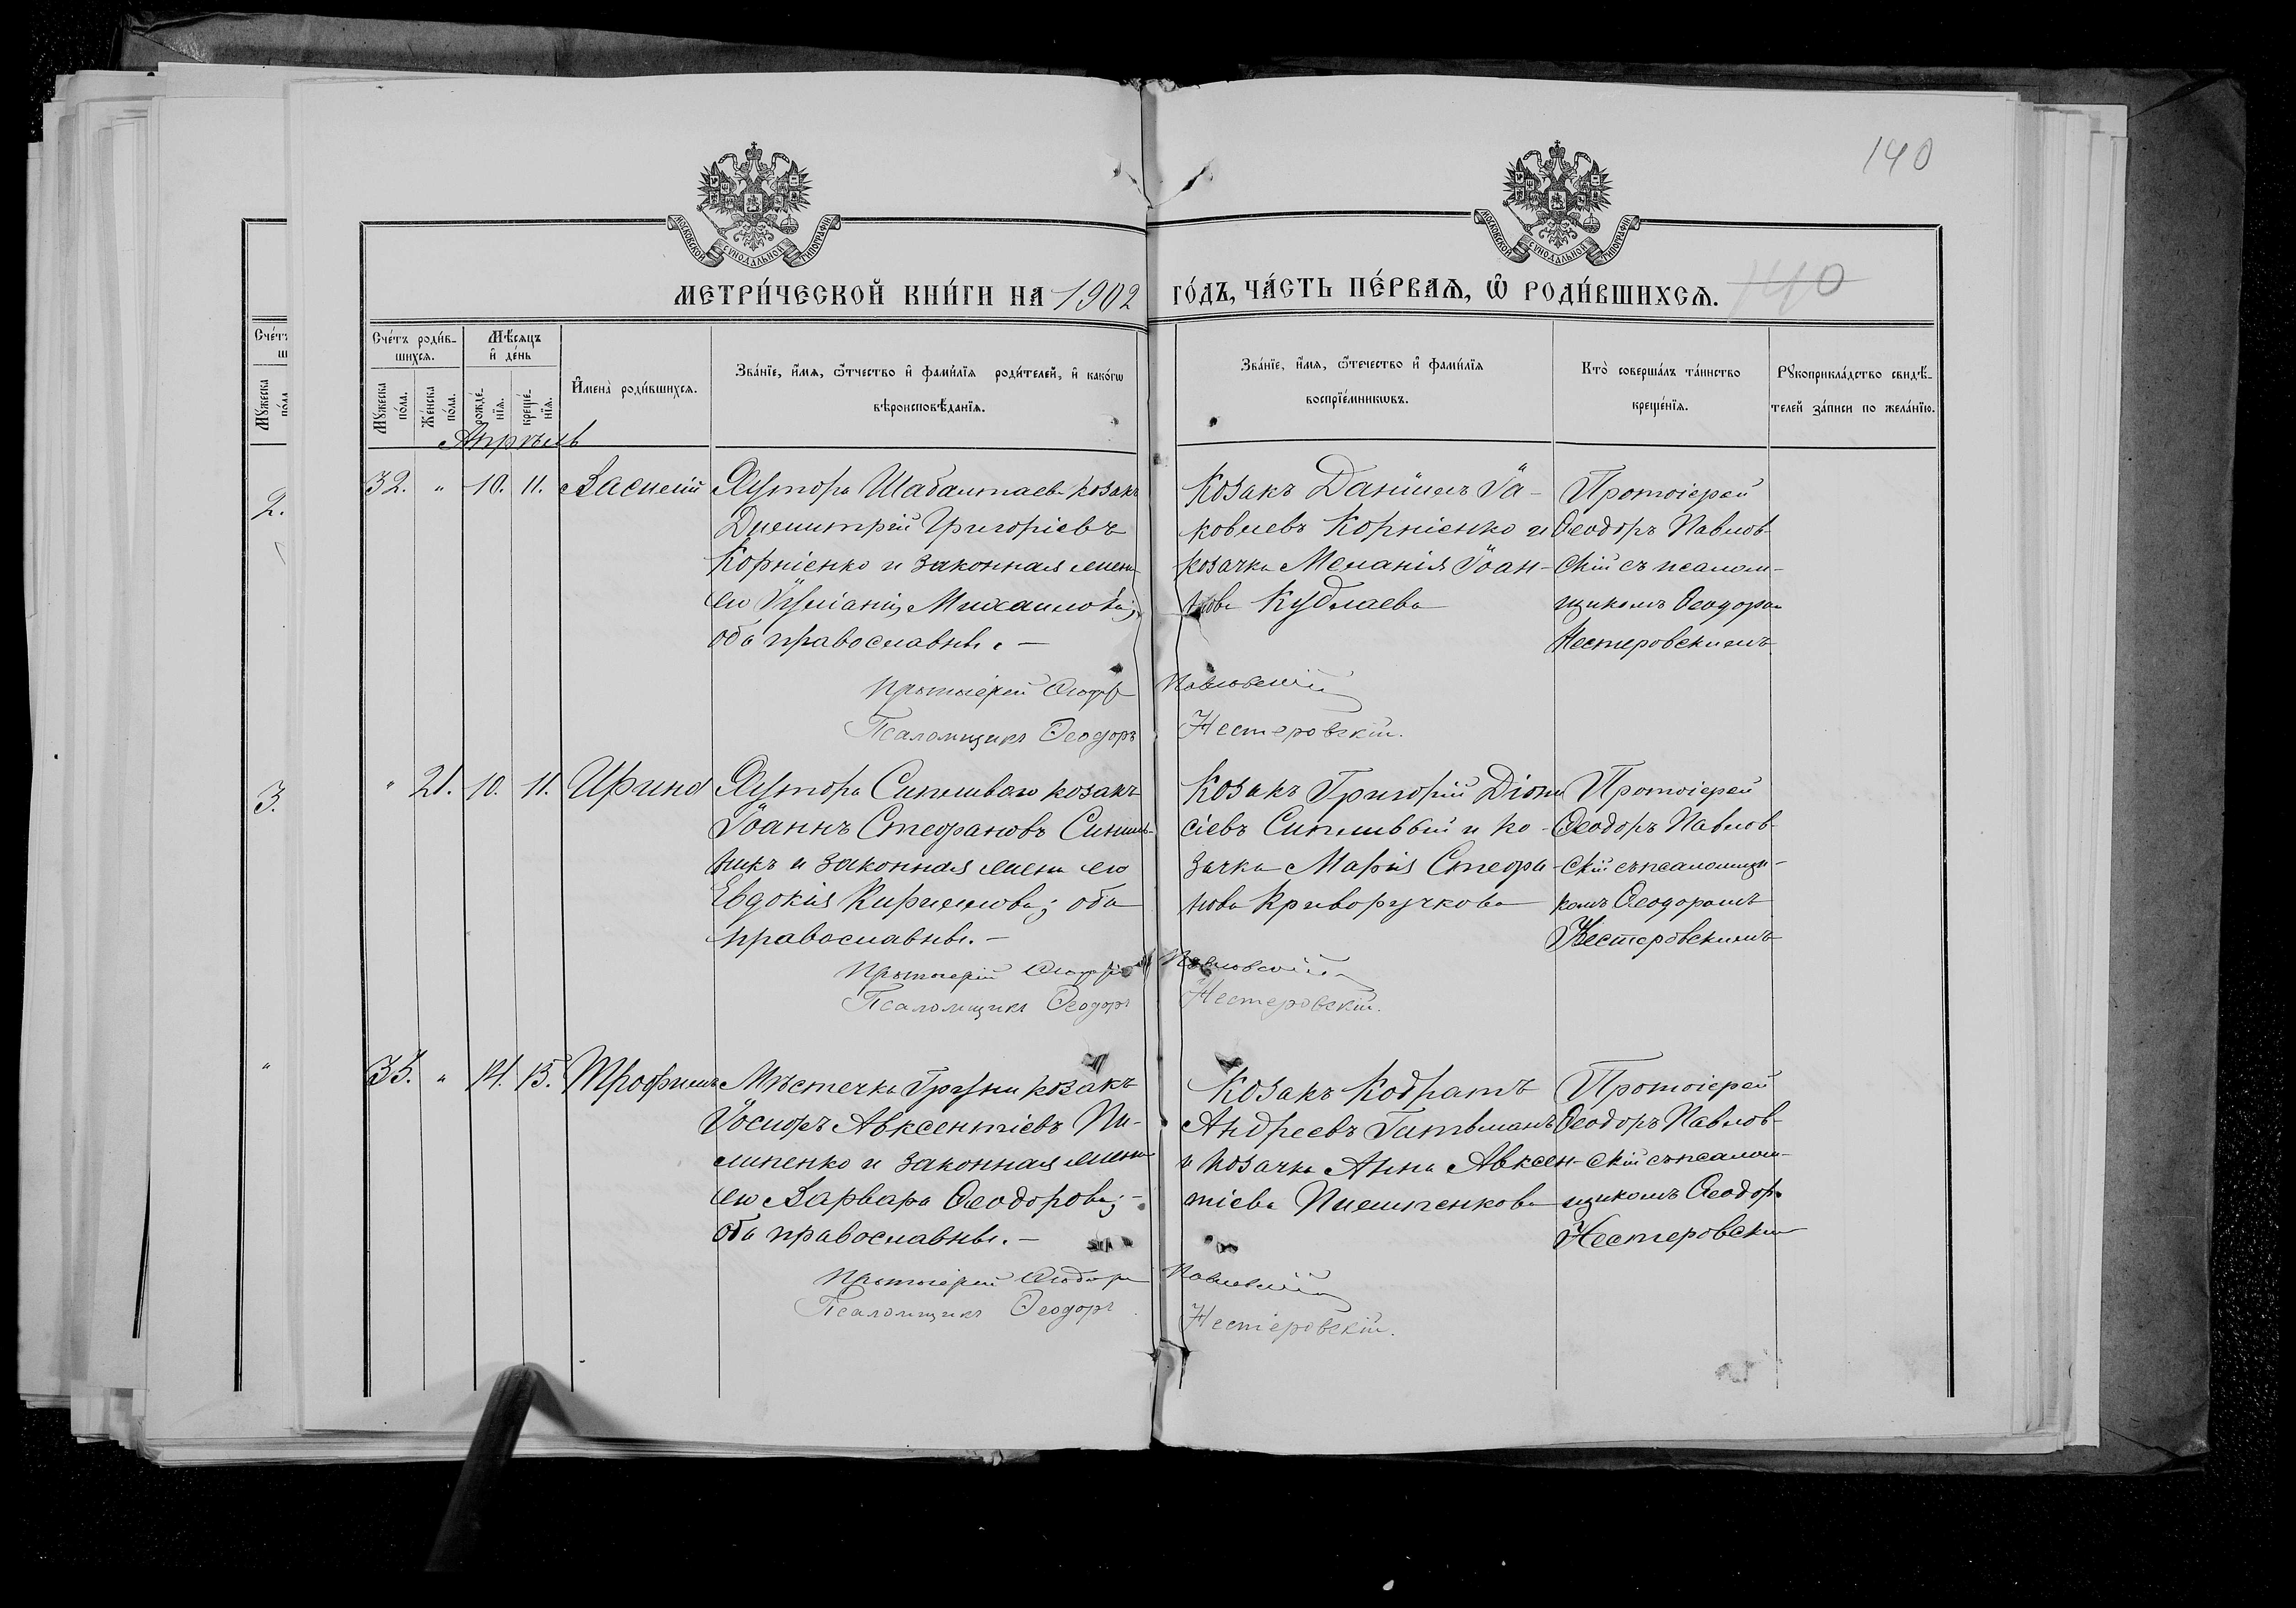 140
МОСКОВСКОЙ СѴНОДАЛЬНОЙ ТИПОГРАФІИ
МОСКОВСКОЙ СѴНОДАЛЬНОЙ ТИПОГРАФІИ
МЕТРИ́ЧЕСКОЙ КНИ́ГИ НА 1902 ГО́ДЪ, ЧА́СТЬ ПЕ́РВАѦ, Ѡ҆ РОДИ́ВШИХСѦ. 140
Сче́тъ роди́в-
шихсѧ.
Мꙋ́жеска по́ла.
Же́нска по́ла.
Мѣ́сѧцъ и҆ де́нь
рожде́-нїѧ.
креще́-нїѧ.
И҆мена̀ роди́вшихсѧ.
Зва́нїе, и҆́мѧ, ѻ҆́тчество и҆ фами́лїѧ роди́телей, и҆ како́гѡ
вѣроисповѣ́данїѧ.
Зва́нїе, и҆́мѧ, ѻ҆те́чество и҆ фами́лїѧ
воспрїе́мникѡвъ.
Кто̀ соверша́лъ та́инство
креще́нїѧ.
Рꙋкоприкла́дство свидѣ́-
телей за́писи по жела́нїю.
Апрѣль
32. " 10. 11. Василій
Хутора Шабалтаева козакъ
Димитрій Григоріевъ
Корніенко и законная жена
его Іуліанія Михаилова;
оба православные. —
Козакъ Даніилъ Іа-
ковлевъ Корніенко и
козачка Меланія Іоан-
нова Кублаева
Протоіерей
Ѳеодоръ Павлов-
скій съ псалом-
щикомъ Ѳеодоромъ
Нестеровскимъ
Протоіерей Ѳеодоръ Павловскій
Псаломщикъ Ѳеодоръ Нестеровскій.
" 21. 10. 11. Ирина
Хутора Сиплываго козакъ
Іоаннъ Стефановъ
и законная жена его
Евдокія Кириллова; оба
православные. —
Козакъ Григорій Діони
сіевъ Сиплывый и ко-
зачка Марія Стефа-
нова Криворучкова
Протоіерей
Ѳеодоръ Павлов-
скій съ псаломщи-
комъ Ѳеодоромъ
Нестеровскимъ
Протоіерей Ѳеодоръ Павловскій
Псаломщикъ Ѳеодоръ Нестеровскій.
33. " 14. 15. Трофимъ
Мѣстечка Груни козакъ
Іосифъ Авксентіевъ Пи-
липенко и законная жена
его Варвара Ѳеодорова; -
оба православные. —
Козакъ Кодратъ
Андреевъ Гитьманъ
и козачка Анна Авксен-
тіева Пилипенкова
Протоіерей
Ѳеодоръ Павлов-
скій съ псалом-
щикомъ Ѳеодор.
Нестеровским
Протоіерей Ѳеодоръ Павловскій
Псаломщикъ Ѳеодоръ Нестеровскій.
Сче́тъ
Мꙋ́жеска по́ла
2.
3.
"